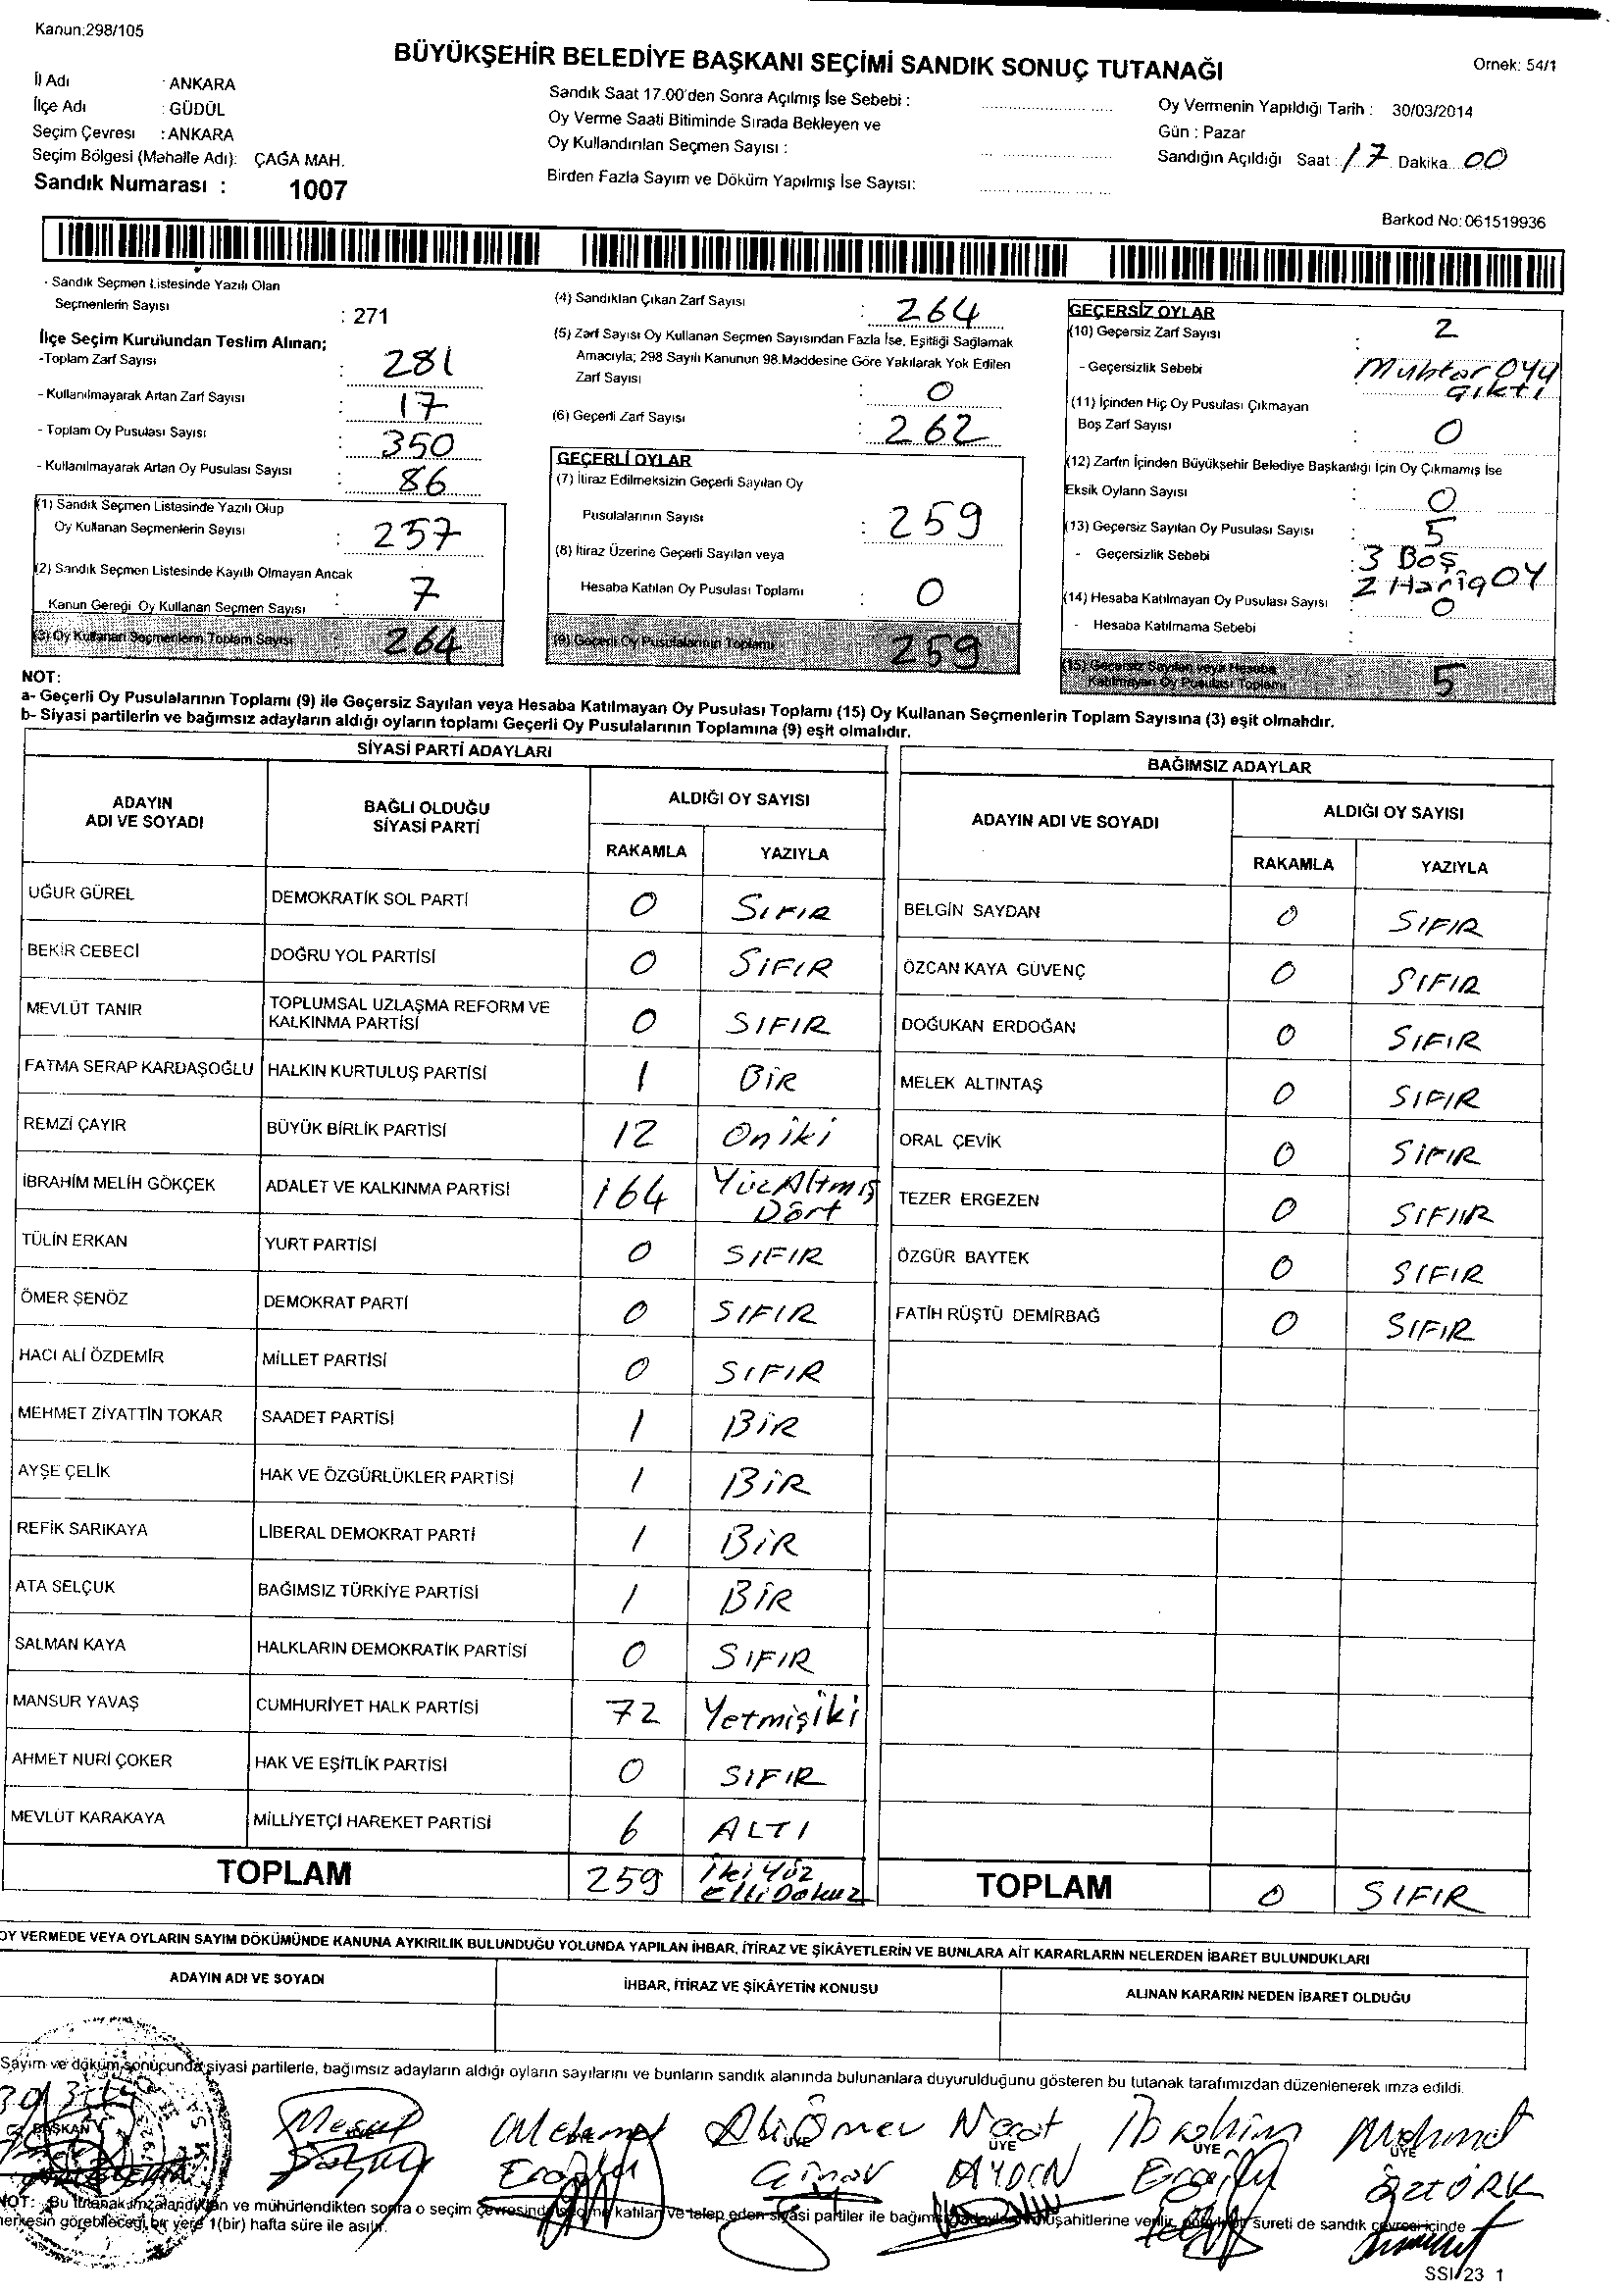 Kanun:298/105
BÜYÜKŞEHİR BELEDİYE BAŞKANI SEÇİMİ SANDIK SONUÇ TUTANAĞI
Ornek: 54/1
İl Adı : ANKARA
İlçe Adı : GÜDÜL
Seçim Çevresi : ANKARA
Seçim Bölgesi (Mahalle Adı): ÇAĞA MAH.
Sandık Numarası : 1007
Sandık Saat 17.00'den Sonra Açılmış İse Sebebi :
Oy Verme Saati Bitiminde Sırada Bekleyen ve
Oy Kullandırılan Seçmen Sayısı :
Birden Fazla Sayım ve Döküm Yapılmış İse Sayısı:
Oy Vermenin Yapıldığı Tarih : 30/03/2014
Gün : Pazar
Sandığın Açıldığı Saat : 17 Dakika 00
Barkod No: 061519936
- Sandık Seçmen Listesinde Yazılı Olan
Seçmenlerin Sayısı : 271
İlçe Seçim Kurulundan Teslim Alınan;
-Toplam Zarf Sayısı : 281
- Kullanılmayarak Artan Zarf Sayısı : 17
- Toplam Oy Pusulası Sayısı : 350
- Kullanılmayarak Artan Oy Pusulası Sayısı : 86
(1) Sandık Seçmen Listesinde Yazılı Olup
Oy Kullanan Seçmenlerin Sayısı : 257
(2) Sandık Seçmen Listesinde Kayıtlı Olmayan Ancak
Kanun Gereği Oy Kullanan Seçmen Sayısı : 7
(3) Oy Kullanan Seçmenlerin Toplam Sayısı : 264
(4) Sandıktan Çıkan Zarf Sayısı : 264
(5) Zarf Sayısı Oy Kullanan Seçmen Sayısından Fazla İse, Eşitliği Sağlamak
Amacıyla; 298 Sayılı Kanunun 98.Maddesine Göre Yakılarak Yok Edilen
Zarf Sayısı : 0
(6) Geçerli Zarf Sayısı : 262
GEÇERLİ OYLAR
(7) İtiraz Edilmeksizin Geçerli Sayılan Oy
Pusulalarının Sayısı : 259
(8) İtiraz Üzerine Geçerli Sayılan veya
Hesaba Katılan Oy Pusulası Toplamı : 0
(9) Geçerli Oy Pusulalarının Toplamı 259
GEÇERSİZ OYLAR
(10) Geçersiz Zarf Sayısı : 2
- Geçersizlik Sebebi Muhtar OYU
çıktı
(11) İçinden Hiç Oy Pusulası Çıkmayan
Boş Zarf Sayısı : 0
(12) Zarfın İçinden Büyükşehir Belediye Başkanlığı İçin Oy Çıkmamış İse
Eksik Oyların Sayısı : 0
(13) Geçersiz Sayılan Oy Pusulası Sayısı : 5
- Geçersizlik Sebebi : 3 Boş
2 Hariç OY
(14) Hesaba Katılmayan Oy Pusulası Sayısı : 0
- Hesaba Katılmama Sebebi :
(15) Geçersiz Sayılan veya Hesaba
Katılmayan Oy Pusulası Toplamı 5
NOT:
a- Geçerli Oy Pusulalarının Toplamı (9) ile Geçersiz Sayılan veya Hesaba Katılmayan Oy Pusulası Toplamı (15) Oy Kullanan Seçmenlerin Toplam Sayısına (3) eşit olmalıdır.
b- Siyasi partilerin ve bağımsız adayların aldığı oyların toplamı Geçerli Oy Pusulalarının Toplamına (9) eşit olmalıdır.
SİYASİ PARTİ ADAYLARI
ADAYIN ADI VE SOYADI BAĞLI OLDUĞU SİYASİ PARTİ ALDIĞI OY SAYISI
RAKAMLA YAZIYLA
UĞUR GÜREL DEMOKRATİK SOL PARTİ 0 SIFIR
BEKİR CEBECİ DOĞRU YOL PARTİSİ 0 SIFIR
MEVLÜT TANIR TOPLUMSAL UZLAŞMA REFORM VE KALKINMA PARTİSİ 0 SIFIR
FATMA SERAP KARDAŞOĞLU HALKIN KURTULUŞ PARTİSİ 1 BİR
REMZİ ÇAYIR BÜYÜK BİRLİK PARTİSİ 12 Oniki
İBRAHİM MELİH GÖKÇEK ADALET VE KALKINMA PARTİSİ 164 YüzAltmış Dört
TÜLİN ERKAN YURT PARTİSİ 0 SIFIR
ÖMER ŞENÖZ DEMOKRAT PARTİ 0 SIFIR
HACI ALİ ÖZDEMİR MİLLET PARTİSİ 0 SIFIR
MEHMET ZİYATTİN TOKAR SAADET PARTİSİ 1 BİR
AYŞE ÇELİK HAK VE ÖZGÜRLÜKLER PARTİSİ 1 BİR
REFİK SARIKAYA LİBERAL DEMOKRAT PARTİ 1 BİR
ATA SELÇUK BAĞIMSIZ TÜRKİYE PARTİSİ 1 BİR
SALMAN KAYA HALKLARIN DEMOKRATİK PARTİSİ 0 SIFIR
MANSUR YAVAŞ CUMHURİYET HALK PARTİSİ 72 Yetmişiki
AHMET NURİ ÇOKER HAK VE EŞİTLİK PARTİSİ 0 SIFIR
MEVLÜT KARAKAYA MİLLİYETÇİ HAREKET PARTİSİ 6 ALTI
TOPLAM 259 İkiYüz ElliDokuz
BAĞIMSIZ ADAYLAR
ADAYIN ADI VE SOYADI ALDIĞI OY SAYISI
RAKAMLA YAZIYLA
BELGİN SAYDAN 0 SIFIR
ÖZCAN KAYA GÜVENÇ 0 SIFIR
DOĞUKAN ERDOĞAN 0 SIFIR
MELEK ALTINTAŞ 0 SIFIR
ORAL ÇEVİK 0 SIFIR
TEZER ERGEZEN 0 SIFIR
ÖZGÜR BAYTEK 0 SIFIR
FATİH RÜŞTÜ DEMİRBAĞ 0 SIFIR
TOPLAM 0 SIFIR
OY VERMEDE VEYA OYLARIN SAYIM DÖKÜMÜNDE KANUNA AYKIRILIK BULUNDUĞU YOLUNDA YAPILAN İHBAR, İTİRAZ VE ŞİKÂYETLERİN VE BUNLARA AİT KARARLARIN NELERDEN İBARET BULUNDUKLARI
ADAYIN ADI VE SOYADI İHBAR, İTİRAZ VE ŞİKÂYETİN KONUSU ALINAN KARARIN NEDEN İBARET OLDUĞU
Sayım ve döküm sonucunda siyasi partilerle, bağımsız adayların aldığı oyların sayılarını ve bunların sandık alanında bulunanlara duyurulduğunu gösteren bu tutanak tarafımızdan düzenlenerek imza edildi.
BAŞKAN Mesut Mehmet Ali Ömer Necat İbrahim Mehmet
ÜYE ÜYE ÜYE ÜYE
AYDIN ÖZTÜRK
NOT: Bu tutanak imzalandıktan ve mühürlendikten sonra o seçim çevresinde seçime katılan ve talep eden siyasi partiler ile bağımsız adayların müşahitlerine verilir, sureti de sandık çevresi içinde
herkesin görebileceği bir yere 1(bir) hafta süre ile asılır.
SSI 23 1